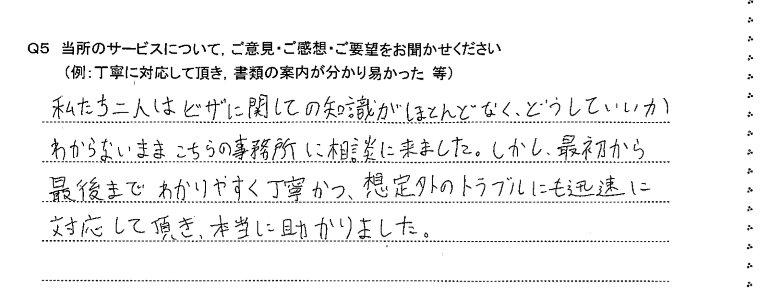 Q5 当所のサービスについて，ご意見・ご感想・ご要望をお聞かせください
（例：丁寧に対応して頂き，書類の案内が分かり易かった 等）
私たち二人はビザに関しての知識がほとんどなく、どうしていいか
わからないままこちらの事務所に相談に来ました。しかし、最初から
最後までわかりやすく丁寧かつ、想定外のトラブルにも迅速に
対応して頂き、本当に助かりました。